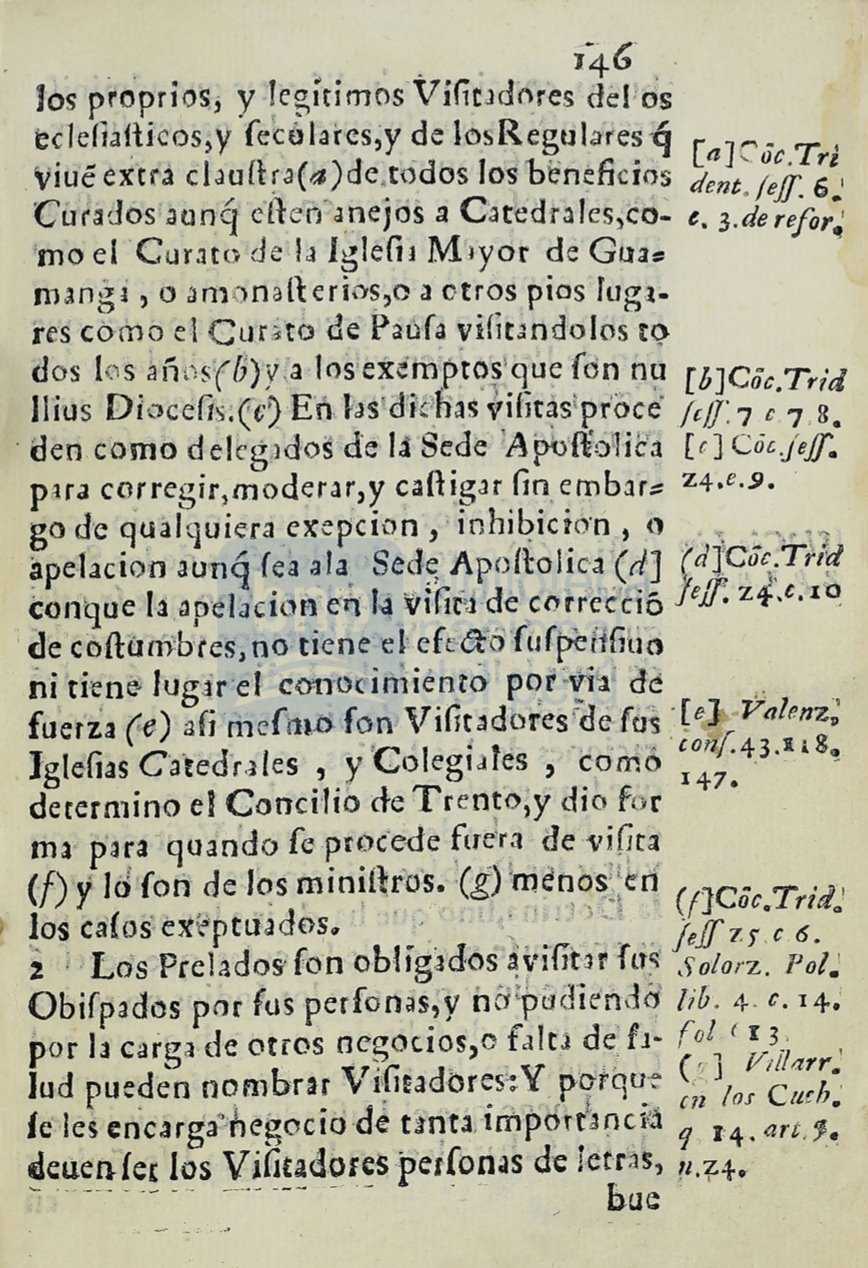 146
los proprios, y legitimos Visitadores del os
eclesiasticos,y secúlares,y de losRegulares q́
viuē extra claustra(a)de todos los beneficios
Curados aunq́ esten anejos a Catedrales,co-
mo el Curato de la Iglesia Mayor de Gua-
manga , o amonasterios,o a otros pios luga-
res como el Curato de Pausa visitandolos to
dos los años(b)y a los exemptos que son nu
llius Diocesis.(c) En las dichas visitas proce
den como delegados de la Sede Apostolica
para corregir,moderar,y castigar sin embar-
go de qualquiera exepcion , inhibicion , o
apelacion aunq́ sea ala Sede Apostolica (d]
conque la apelacion en la visita de correcciō
de costumbres,no tiene el efecto suspensiuo
ni tiene lugar el conocimiento por via de
fuerza (e) asi mesmo son Visitadores de sus
Iglesias Catedrales , y Colegiales , como
determino el Concilio de Trento,y dio for
ma para quando se procede fuera de visita
(f) y lo son de los ministros. (g) menos en
los casos exeptuados.
2 Los Prelados son obligados avisitar sus
Obispados por sus personas,y no pudiendo
por la carga de otros negocios,o falta de sa-
lud pueden nombrar Visitadores:Y porque
se les encarga negocio de tanta importancia
deuen ser los Visitadores personas de letras,
bue
[a]Cōc.Tri
dent. sess. 6.
c. 3.de refor.
[b]Cōc.Trid
sess. 7 c 7 8.
[c] Cōc.sess.
24.c.9.
(d]Cōc.Trid
sess. 24.c.10
[e] Valenz.
cons.43.118.
147.
(f]Cōc.Trid.
sess 25 c 6.
Solorz. Pol.
lib. 4. c. 14.
fol 13
( ] Villarr.
en los Cuch.
q 14. art.
n.24.